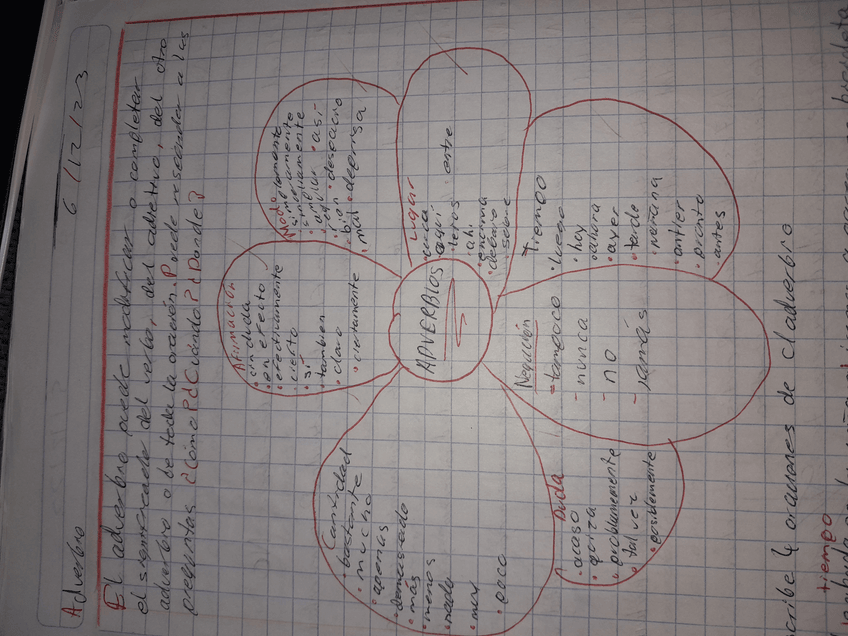 Adverbio
6/12/23
El adverbio puede modificar o completar
el significado del verbo, del adjetivo, del otro
adverbio o de toda la oración. Puede responder a las
preguntas ¿Cómo? ¿Cuándo? ¿Donde?
ADVERBIOS
Afirmación
• sin duda
• en efecto
• efectivamente
• cierto
• sí
• tambien
• claro
• ciertamente
Modo
• así
• regular
• despacio
• bien
• mal
• deprisa
Lugar
cerca
aqui
lejos
entre
• ahi
• encima
• debajo
• sobre
Tiempo
• luego
• hoy
• ahora
• ayer
• tarde
• mañana
antier
• pronto
antes
Negación
- tampoco
- nunca
- no
- jamás
Duda
• acaso
• quiza
• probablemente
• tal vez
• posiblemente
Cantidad
• bastante
• mucho
• apenas
• demasiado
• más
• menos
• nada
• muy
• poco
cribe 4 oraciones de cl adverbio
tiempo